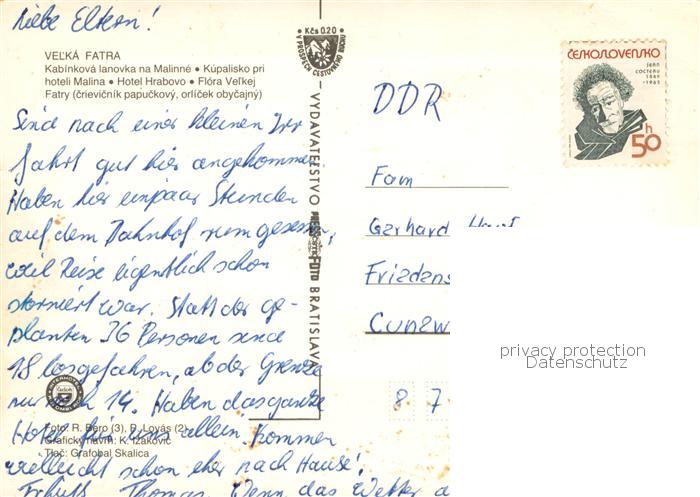 Liebe Eltern!
Kčs 0.20
V PROSPECH CESTOVNÉHO RUCHU
VEĽKÁ FATRA
Kabínková lanovka na Malinné • Kúpalisko pri
hoteli Malina • Hotel Hrabovo • Flóra Veľkej
Fatry (črievičník papučkový, orlíček obyčajný)
Sind nach einer kleinen Irr
fahrt gut hier angekommen.
Haben hier ein paar Stunden
auf dem Bahnhof rum gesessen,
weil Reise eigentlich schon
storniert war. Statt der ge-
planten 36 Personen sind
18 losgefahren, ab der Grenze
nur noch 14. Haben das ganze
Hotel für uns allein. Kommen
vielleicht schon eher nach Hause!
Thomas. Wenn das Wetter
Foto: R. Bero (3), R. Lovás (2)
Grafický návrh: K. Izakovič
Tlač: Grafobal Skalica
VYDAVATEĽSTVO
FOTO BRATISLAVA
ČESKOSLOVENSKO
JEAN
COCTEAU
1889
-1963
50 h
DDR
Fam
Gerhard
Friedens
Cunew
8 7
privacy protection
Datenschutz